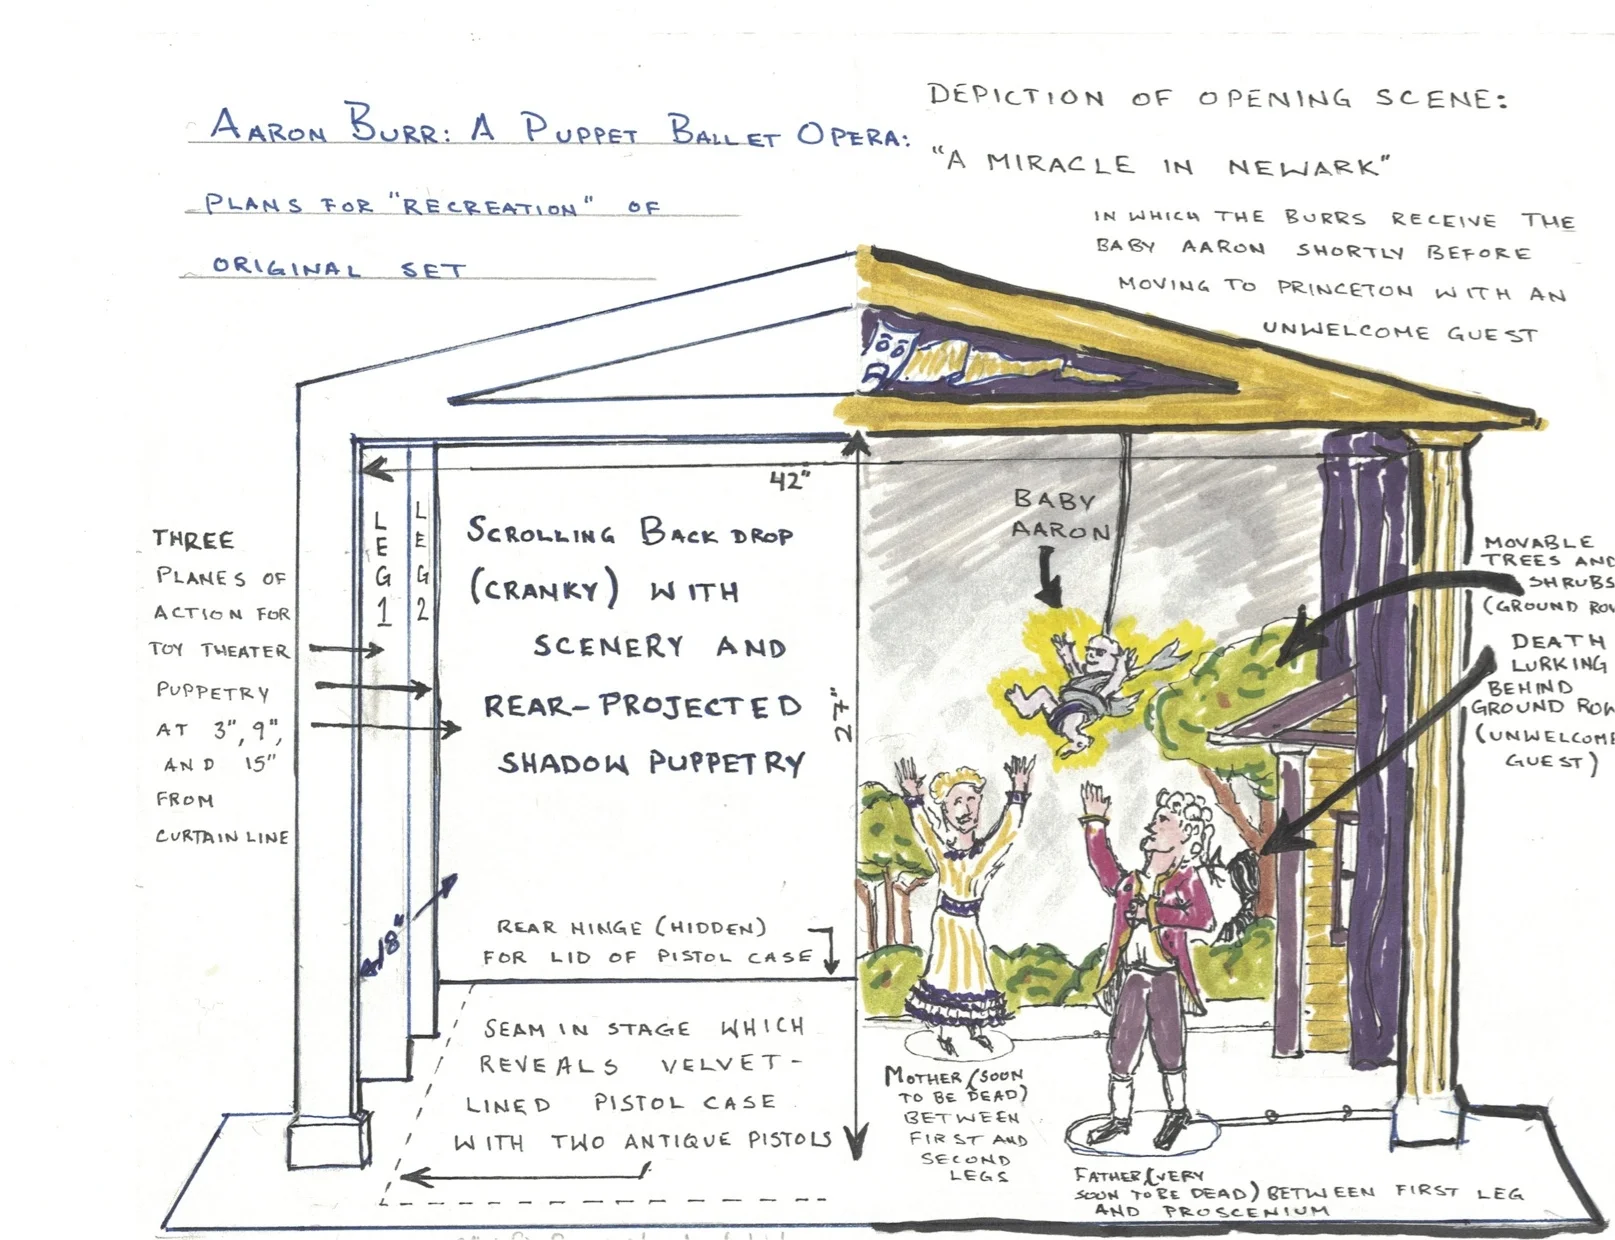 AARON BURR: A PUPPET BALLET OPERA:
PLANS FOR "RECREATION" OF
ORIGINAL SET
DEPICTION OF OPENING SCENE:
"A MIRACLE IN NEWARK"
IN WHICH THE BURRS RECEIVE THE
BABY AARON SHORTLY BEFORE
MOVING TO PRINCETON WITH AN
UNWELCOME GUEST
42"
THREE
PLANES OF
ACTION FOR
TOY THEATER
PUPPETRY
AT 3", 9",
AND 15"
FROM
CURTAIN LINE
LEG 1
LEG 2
SCROLLING BACKDROP
(CRANKY) WITH
SCENERY AND
REAR-PROJECTED
SHADOW PUPPETRY
27"
18"
REAR HINGE (HIDDEN)
FOR LID OF PISTOL CASE
SEAM IN STAGE WHICH
REVEALS VELVET-
LINED PISTOL CASE
WITH TWO ANTIQUE PISTOLS
BABY
AARON
MOVABLE
TREES AND
SHRUBS
(GROUND ROW
DEATH
LURKING
BEHIND
GROUND ROW
(UNWELCOME
GUEST)
MOTHER (SOON
TO BE DEAD)
BETWEEN
FIRST AND
SECOND
LEGS
FATHER (VERY
SOON TO BE DEAD) BETWEEN FIRST LEG
AND PROSCENIUM